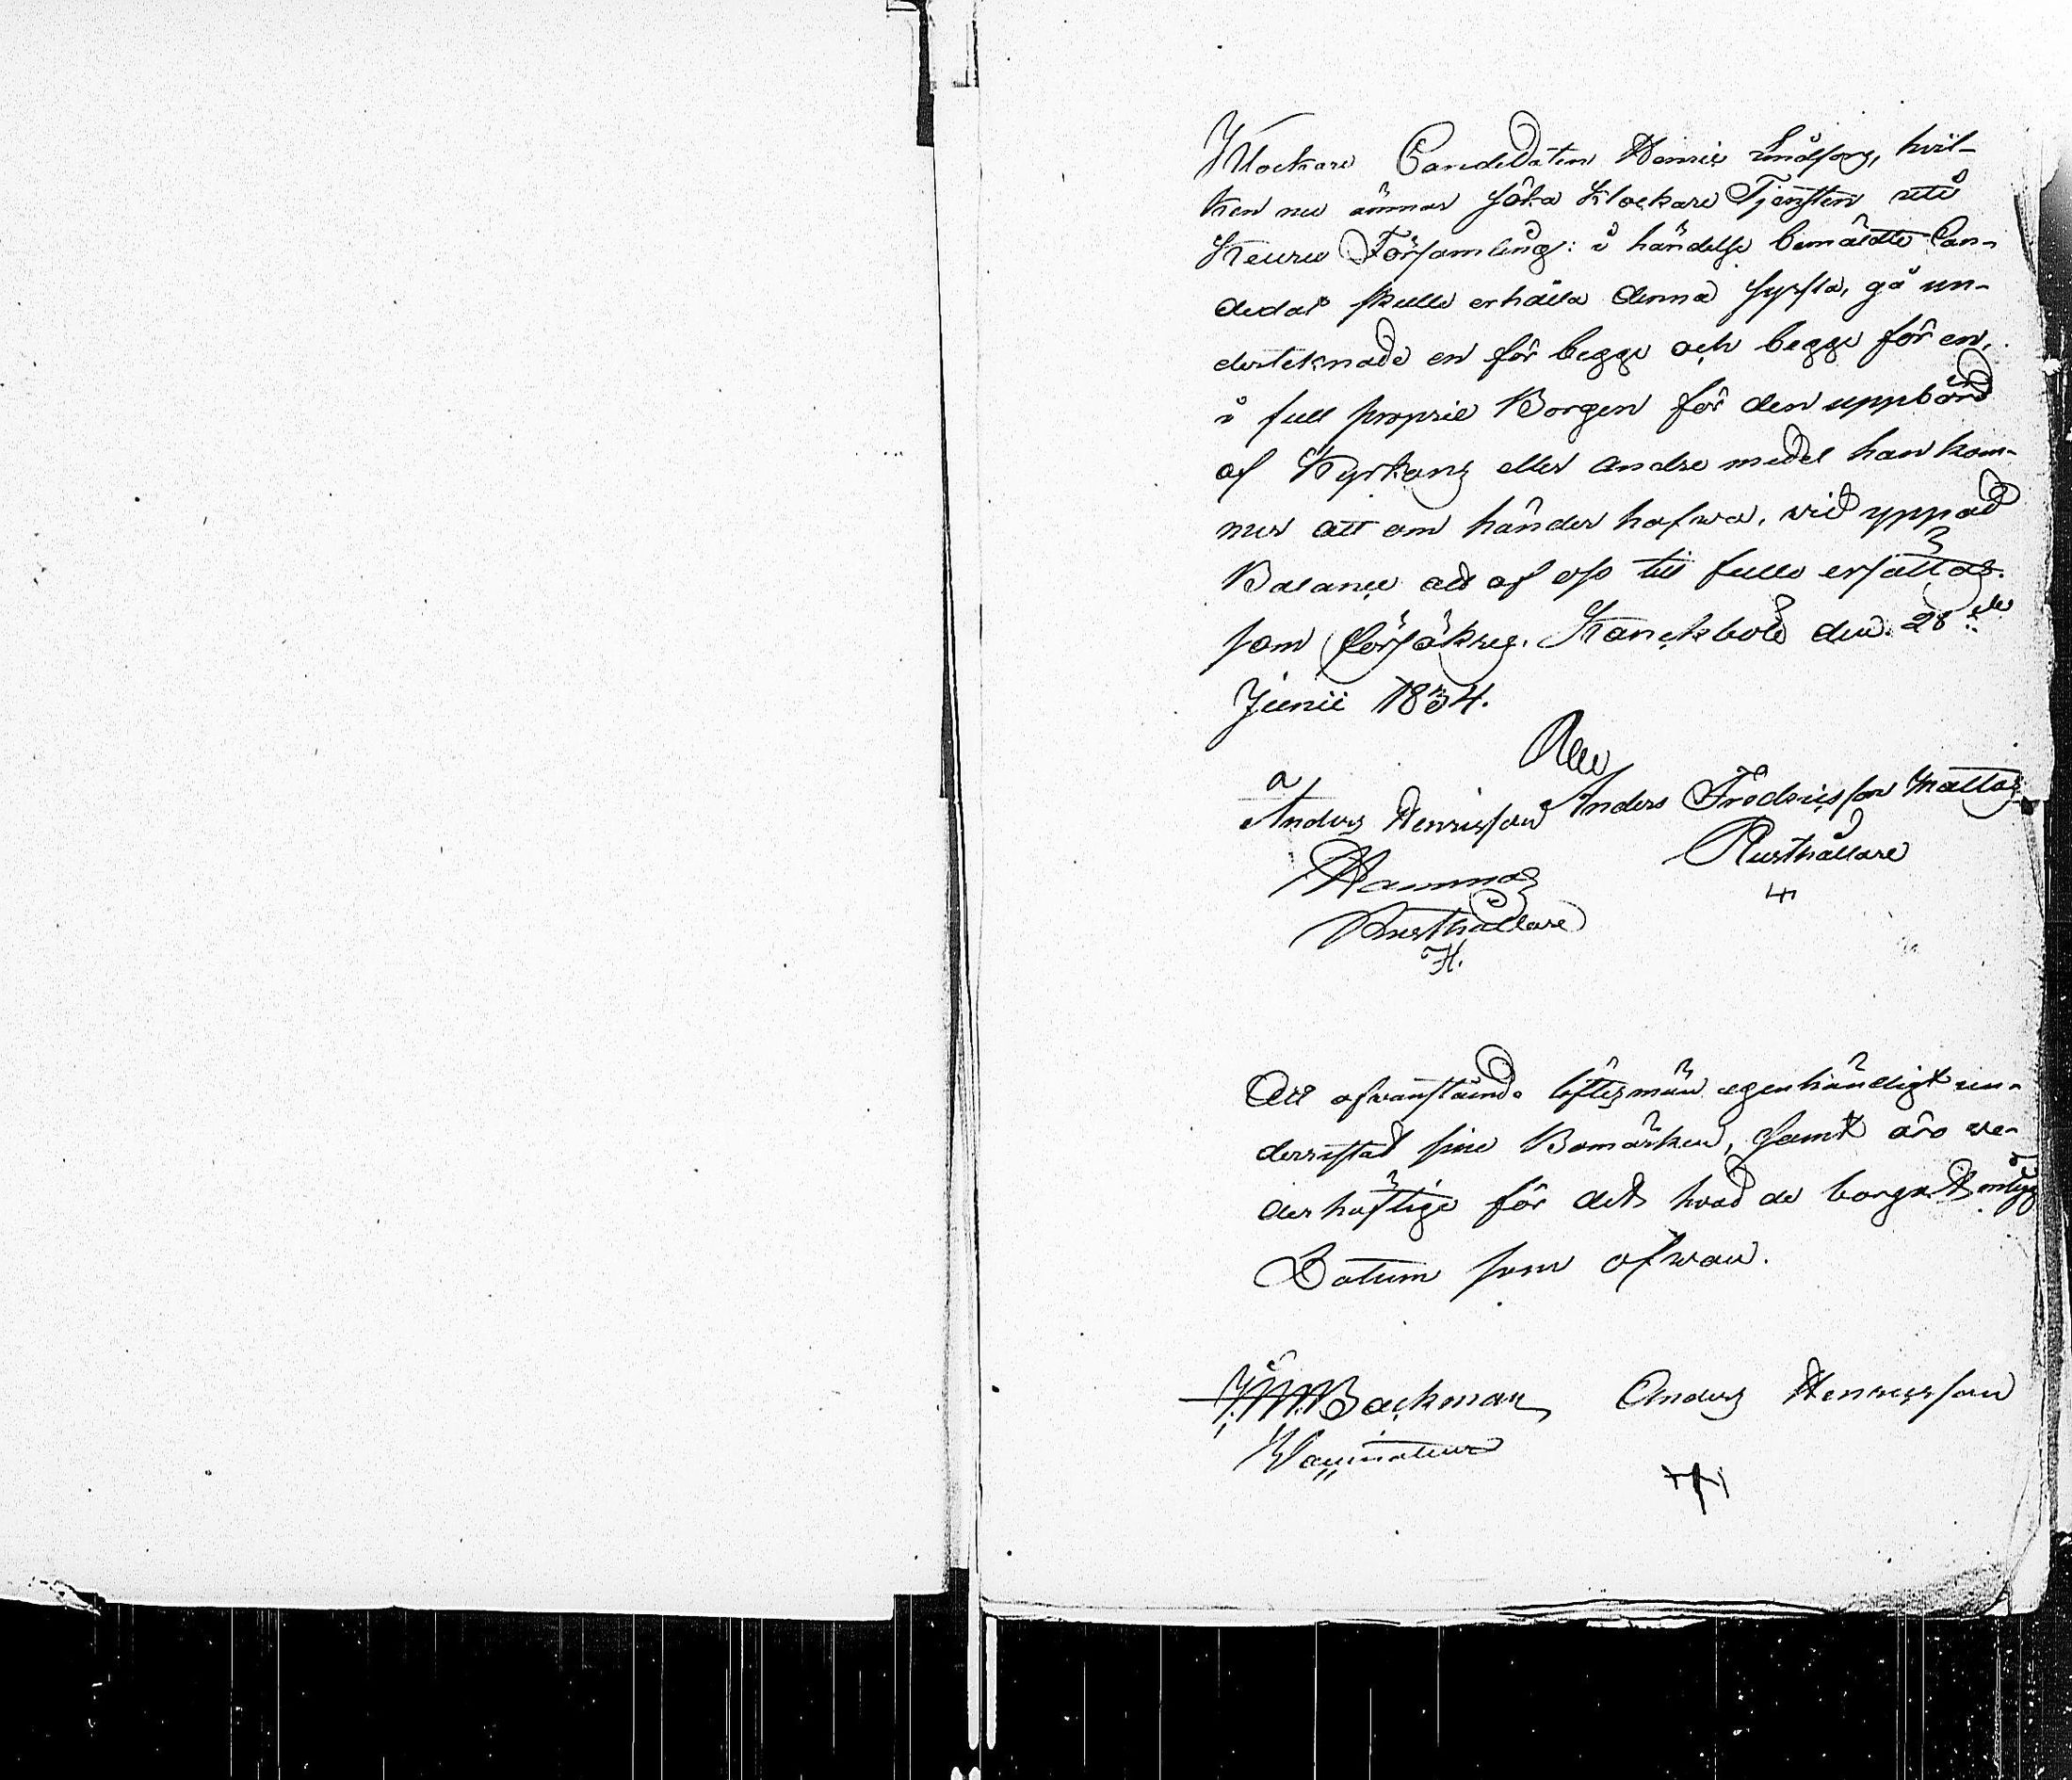 Klockare Candidaten Henric Lindforss, hvil-
ken nu ämnar söka Klockare Tjensten uti
Keuru Församling: i händelse bemäldte Can-
didat skulle erhålla denna syssla, gå un-
derteknade en för begge och begge för en,
i full proprie Borgen för den uppbörd
af Kyrkans eller andre medel han kom-
mer att om händer hafwa, vid yppad
Balance att af oss till fullo ersättas.
som försäkras. den 28de
Junii 1834.
Anders Henricsson Anders Fredricsson Mattas
Rusthållare
Rusthållare
H.
Att ofwanstående löftesmän egenhändigt un-
derristat sine Bomärken, samt äro ve-
derhäftige för det hvad de borgat
Datum som ofwan.
J.M. Backman Anders Henricsson
Vaccinateur